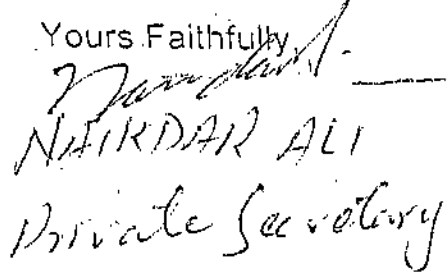 Yours Faithfully
NAIKDAR ALI
Private Secretary